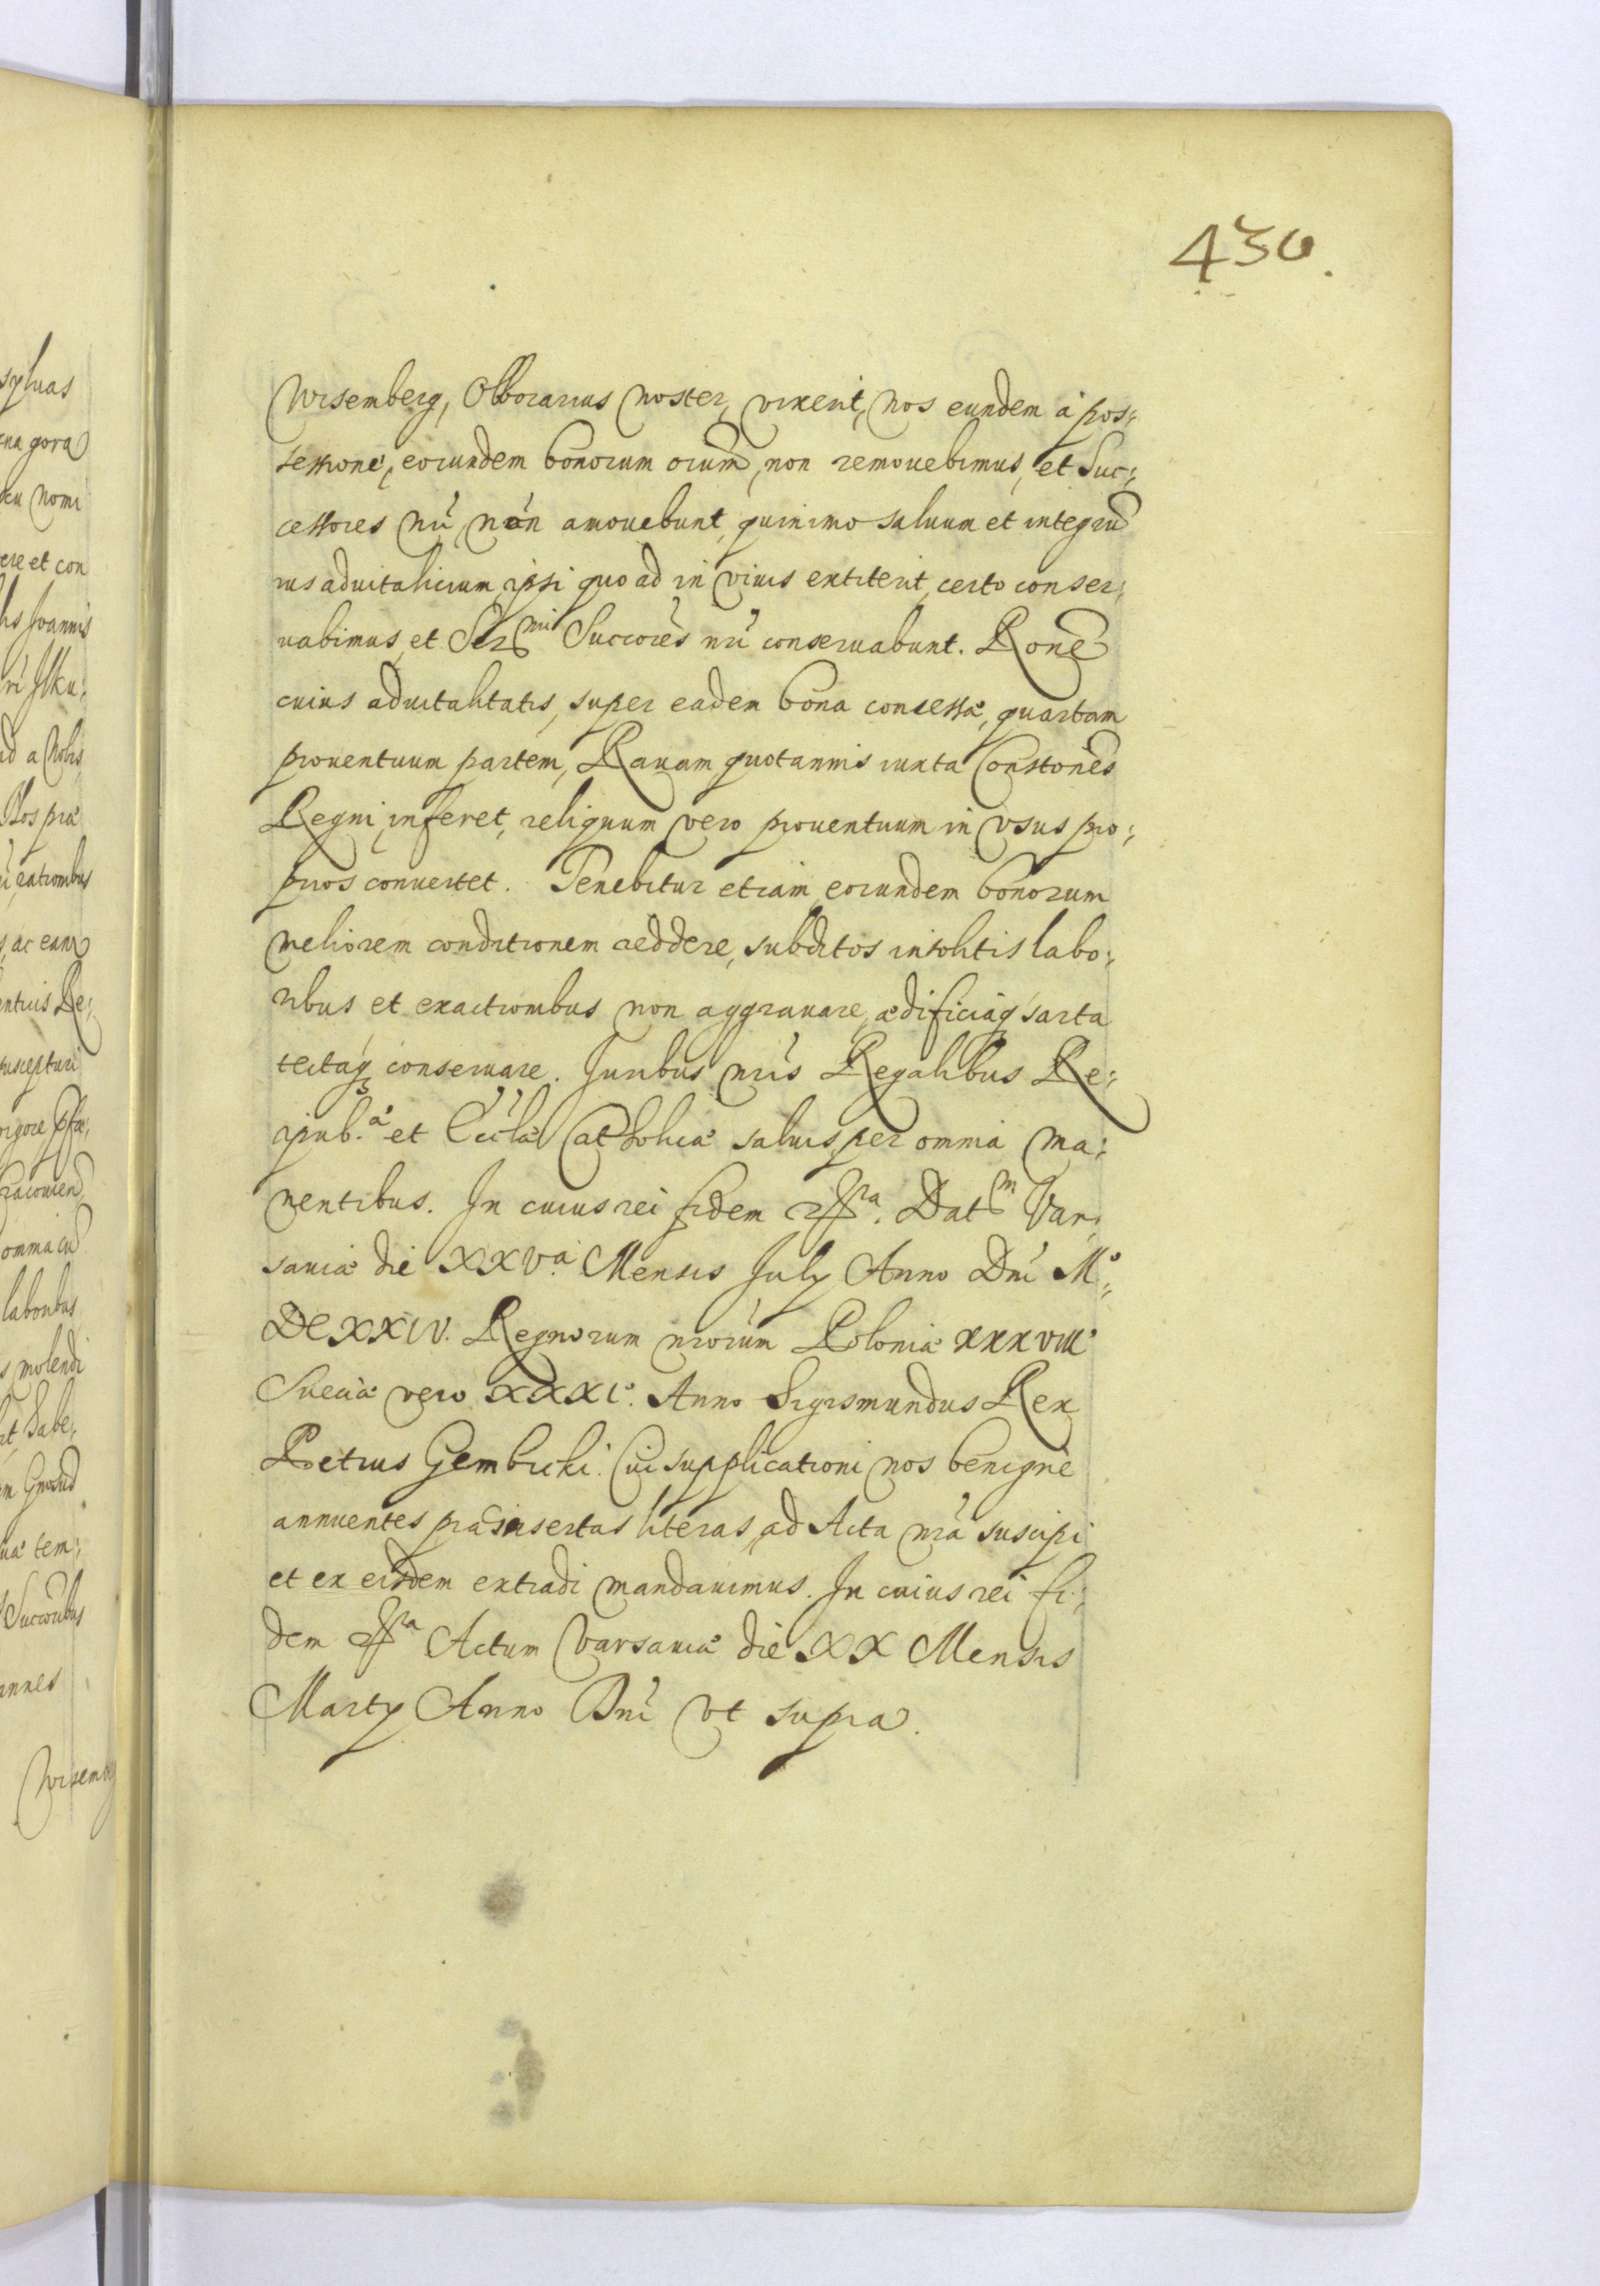 430.
Wisemberg, Olborarius noster, vixerit, nos eundem à pos:
sessione, eorundem bonorum orum̃, non remouebimus, et Suc:
cessores nr̃i non amouebunt, quinimo saluum et integrũ
ius aduitalicium ipsi quo ad in viuis extiterit, certo conser:
uabimus, et Ser^mi Succoreś nr̃i conseruabunt. Ronẽ
cuius aduitalitatis, super eadem bona concessæ, quartam
prouentuum partem, Rauam quotannis iuxta Constonẽs
Regni, inferet, reliquum vero prouentuum in vsus pro:
prios conuertet. Tenebitur etiam eorundem bonorum
meliorem conditionem reddere, subditos insolitis labo:
ribus et exactionibus non aggrauare, ædificiaq; sarta
tectaq; conseruare. Juribus nr̃is Regalibus Re:
ipub.æ et Eccl̃æ Catholicæ saluis per omnia ma:
nentibus. In cuius rei fidem &ra. Dat^m Var:
sauiæ die XXV.a Mensis July Anno Dnĩ M.o
DCXXIV. Regnorum nrorum̃ Poloniæ XXXVIIo
Sueciæ vero XXXIo. Anno Sigismundus Rex
Petrus Gembicki. Cui supplicationi nos benignè
annuentes præinsertas literas, ad Acta nr̃a suscipi
et ex eisdem extradi mandauimus. In cuius rei fi:
dem &ra Actum Varsauiæ die XX Mensis
Marty Anno Dnĩ vt supra.
syluas
gora
nomi
ere et con
Joannis
Ilku:
a Nobis
Nos præ
rationibus
ac eam
Re:
suscepturi
omnia cũ
laboribus
molendi
habe:
tem:
Succoribus
Wisemb